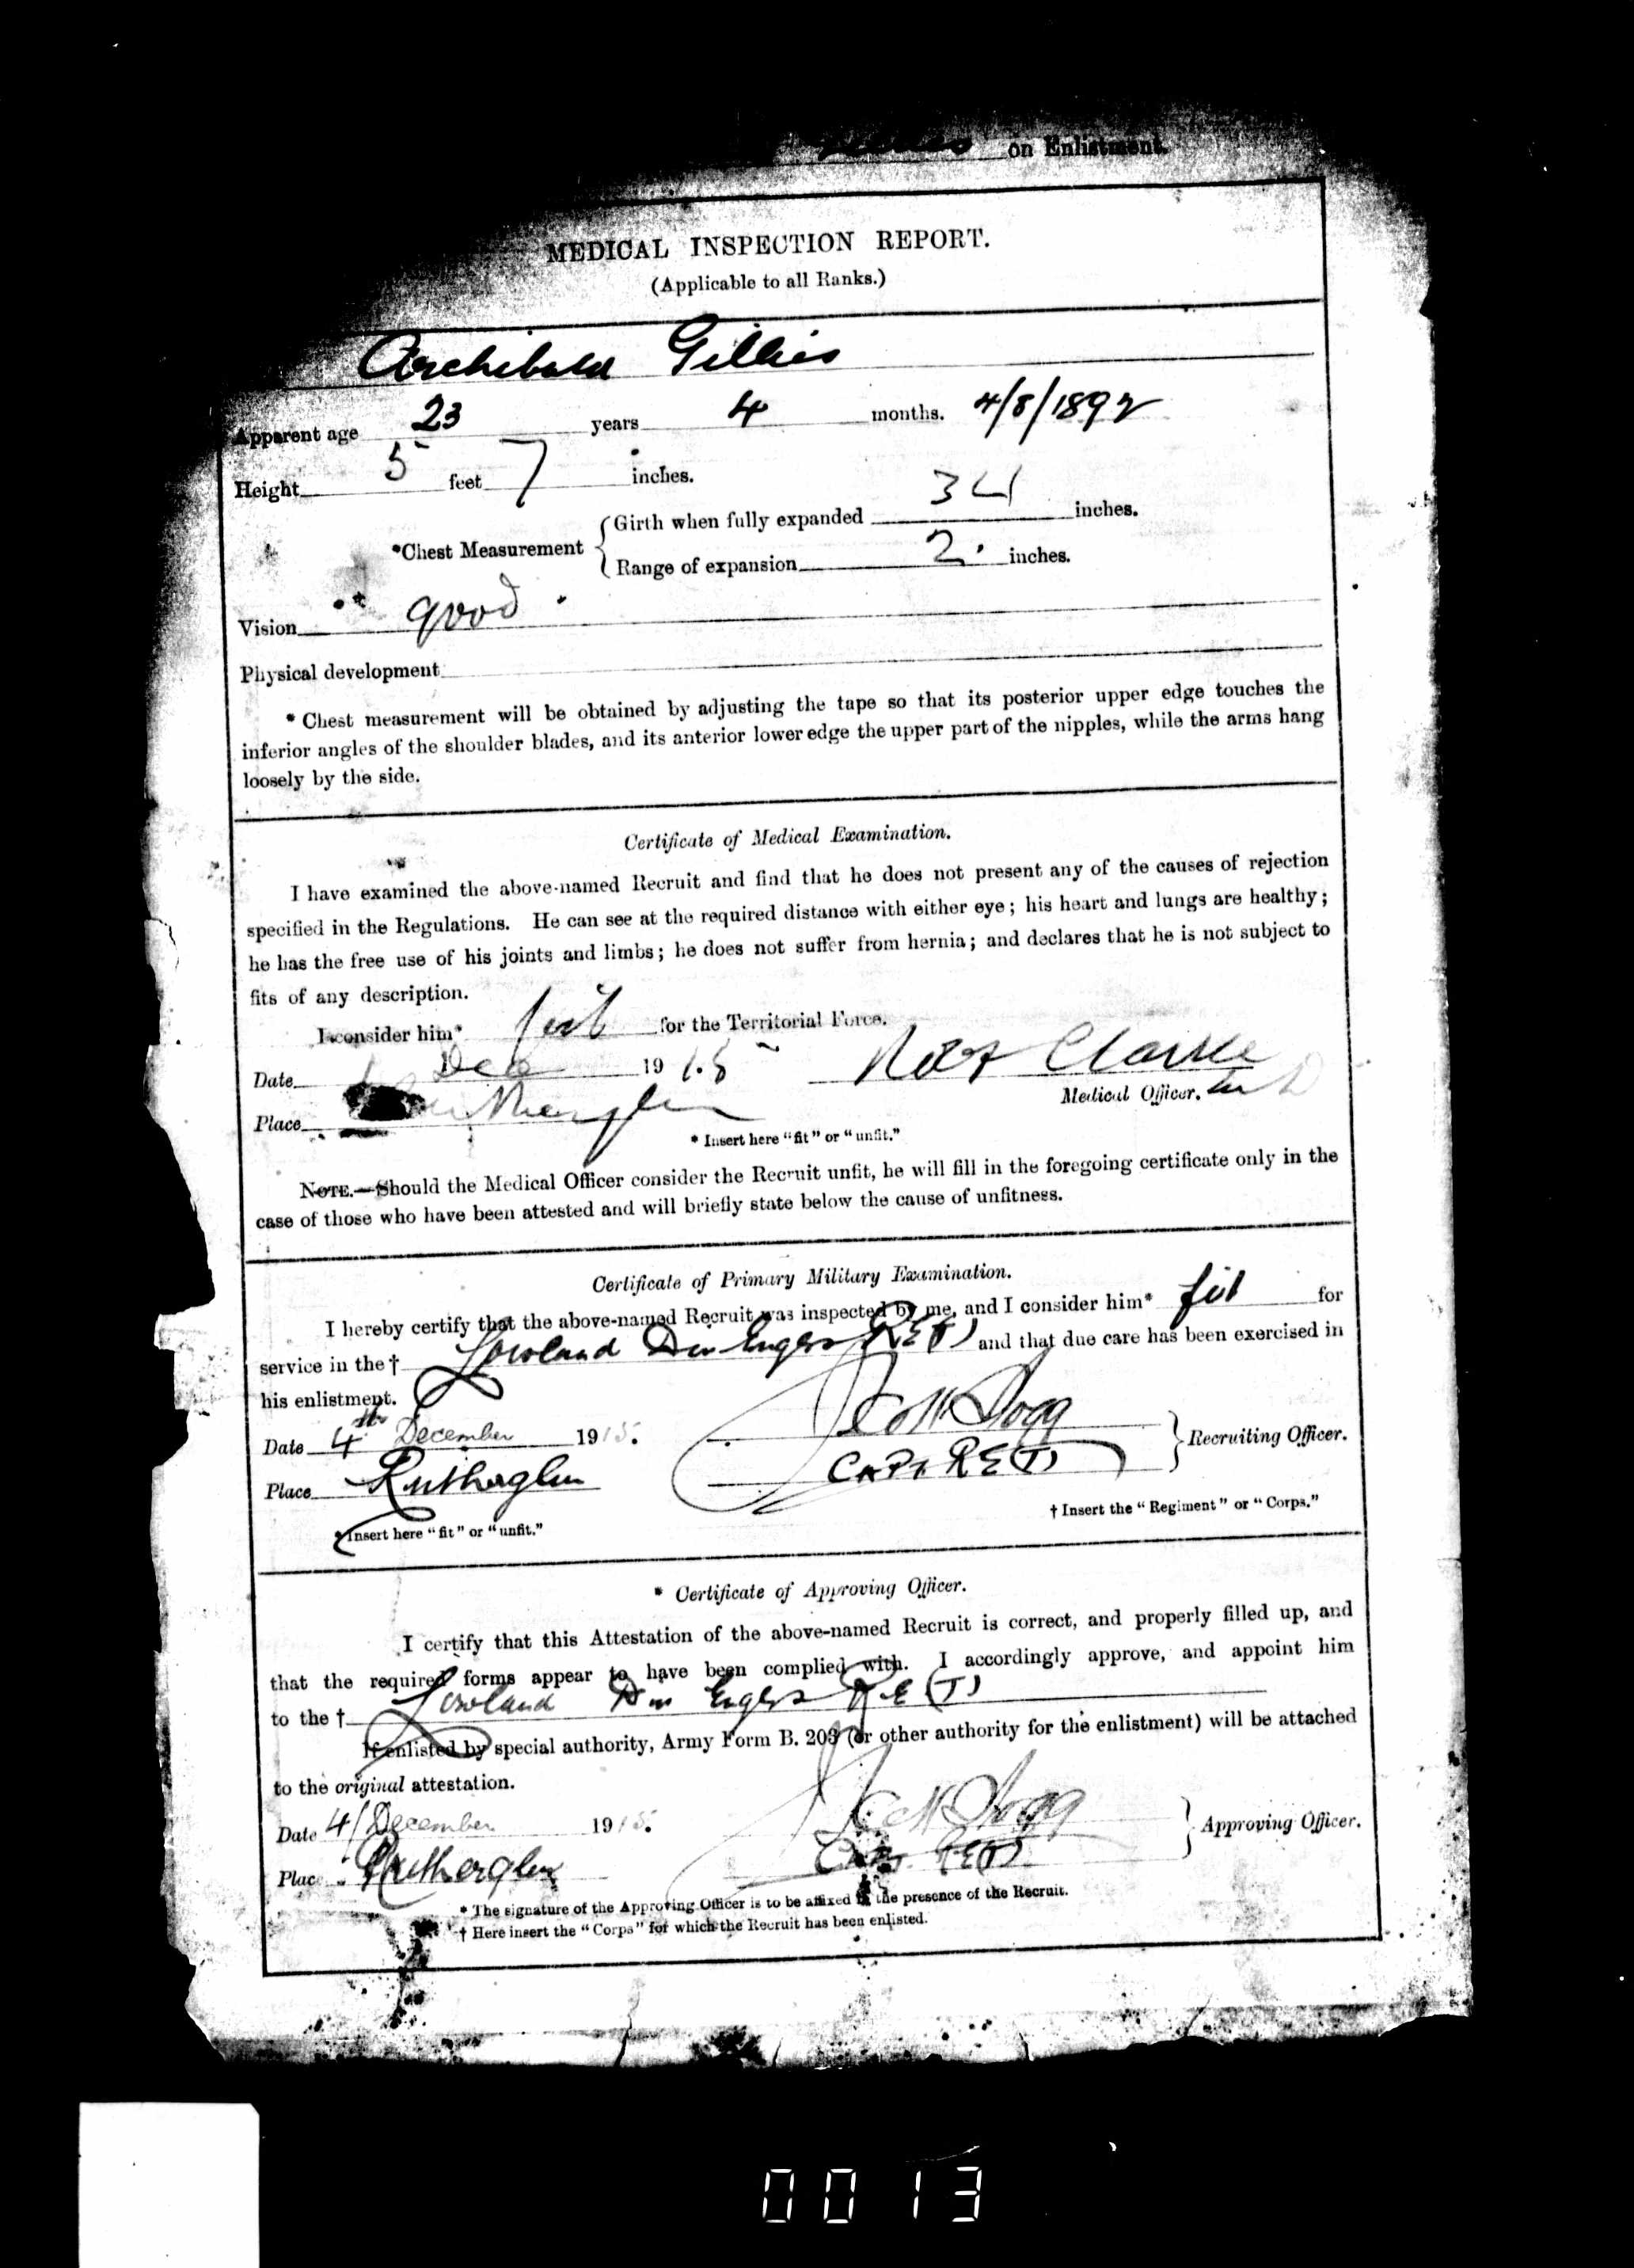 on Enlistment.
MEDICAL INSPECTION REPORT.
(Applicable to all Ranks.)
Archibald Gillies
Apparent age 23 years 4 months. 4/8/1892
Height 5 feet 7 inches.
*Chest Measurement { Girth when fully expanded 34 inches.
Range of expansion 2. inches.
Vision good
Physical development
* Chest measurement will be obtained by adjusting the tape so that its posterior upper edge touches the
inferior angles of the shoulder blades, and its anterior lower edge the upper part of the nipples, while the arms hang
loosely by the side.
Certificate of Medical Examination.
I have examined the above-named Recruit and find that he does not present any of the causes of rejection
specified in the Regulations. He can see at the required distance with either eye; his heart and lungs are healthy;
he has the free use of his joints and limbs; he does not suffer from hernia; and declares that he is not subject to
fits of any description.
I consider him* fit for the Territorial Force.
Date Dec 1915 Robt Clarke
Medical Officer.
Place Rutherglen
* Insert here "fit" or "unfit."
NOTE.—Should the Medical Officer consider the Recruit unfit, he will fill in the foregoing certificate only in the
case of those who have been attested and will briefly state below the cause of unfitness.
Certificate of Primary Military Examination.
I hereby certify that the above-named Recruit was inspected by me, and I consider him* fit for
service in the † Lowland Div Engrs R E (T) and that due care has been exercised in
his enlistment.
Date 4th December 1915.
} Recruiting Officer.
Place Rutherglen Capt R E (T)
* Insert here "fit" or "unfit." † Insert the "Regiment" or "Corps."
* Certificate of Approving Officer.
I certify that this Attestation of the above-named Recruit is correct, and properly filled up, and
that the required forms appear to have been complied with. I accordingly approve, and appoint him
to the † Lowland Div Engrs R E (T)
If enlisted by special authority, Army Form B. 203 (or other authority for the enlistment) will be attached
to the original attestation.
Date 4/December 1915.
} Approving Officer.
Place Rutherglen Capt. R E (T)
* The signature of the Approving Officer is to be affixed in the presence of the Recruit.
† Here insert the "Corps" for which the Recruit has been enlisted.
0013